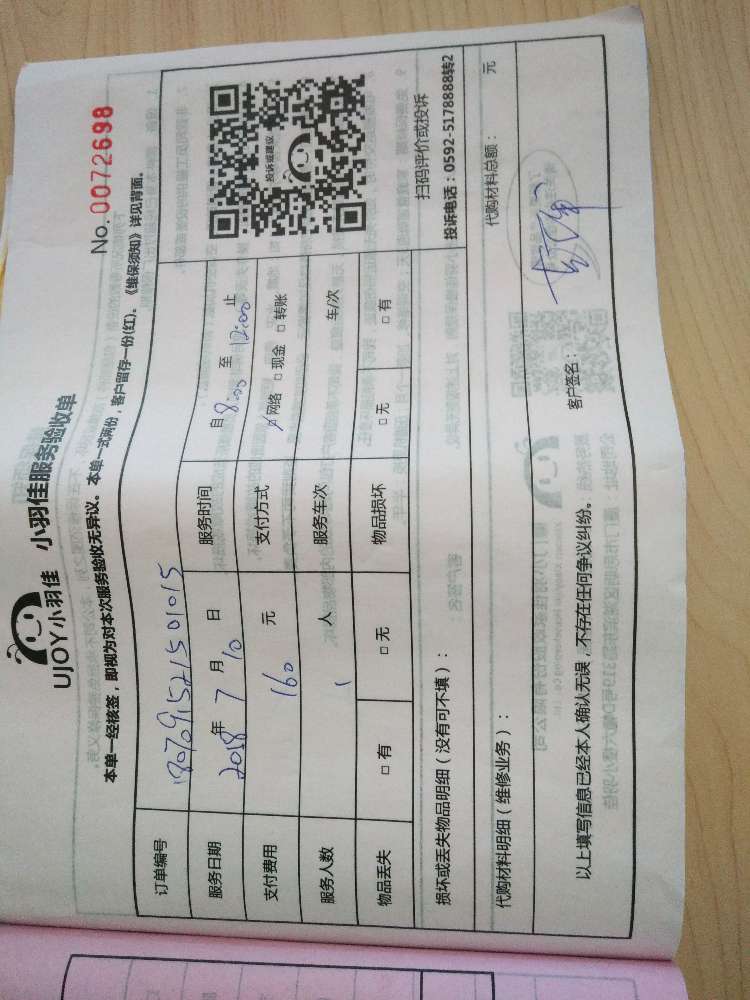 UJOY小羽佳 小羽佳服务验收单
No. 0072698
本单一经核签，即视为对本次服务验收无异议。本单一式两份，客户留存一份(红)。《维保须知》详见背面。
订单编号 1807091521501015
服务日期 2018 年 7 月 10 日 服务时间 自 8:00 至 12:00 止
支付费用 160 元 支付方式 ☑网络 □现金 □转账
服务人数 1 人 服务车次 车/次
物品丢失 □有 □无 物品损坏 □无 □有
投诉或建议
扫码评价或投诉
投诉电话：0592-5178888转2
损坏或丢失物品明细（没有可不填）：
代购材料明细（维修业务）： 代购材料总额： 元
以上填写信息已经本人确认无误，不存在任何争议纠纷。 客户签名：